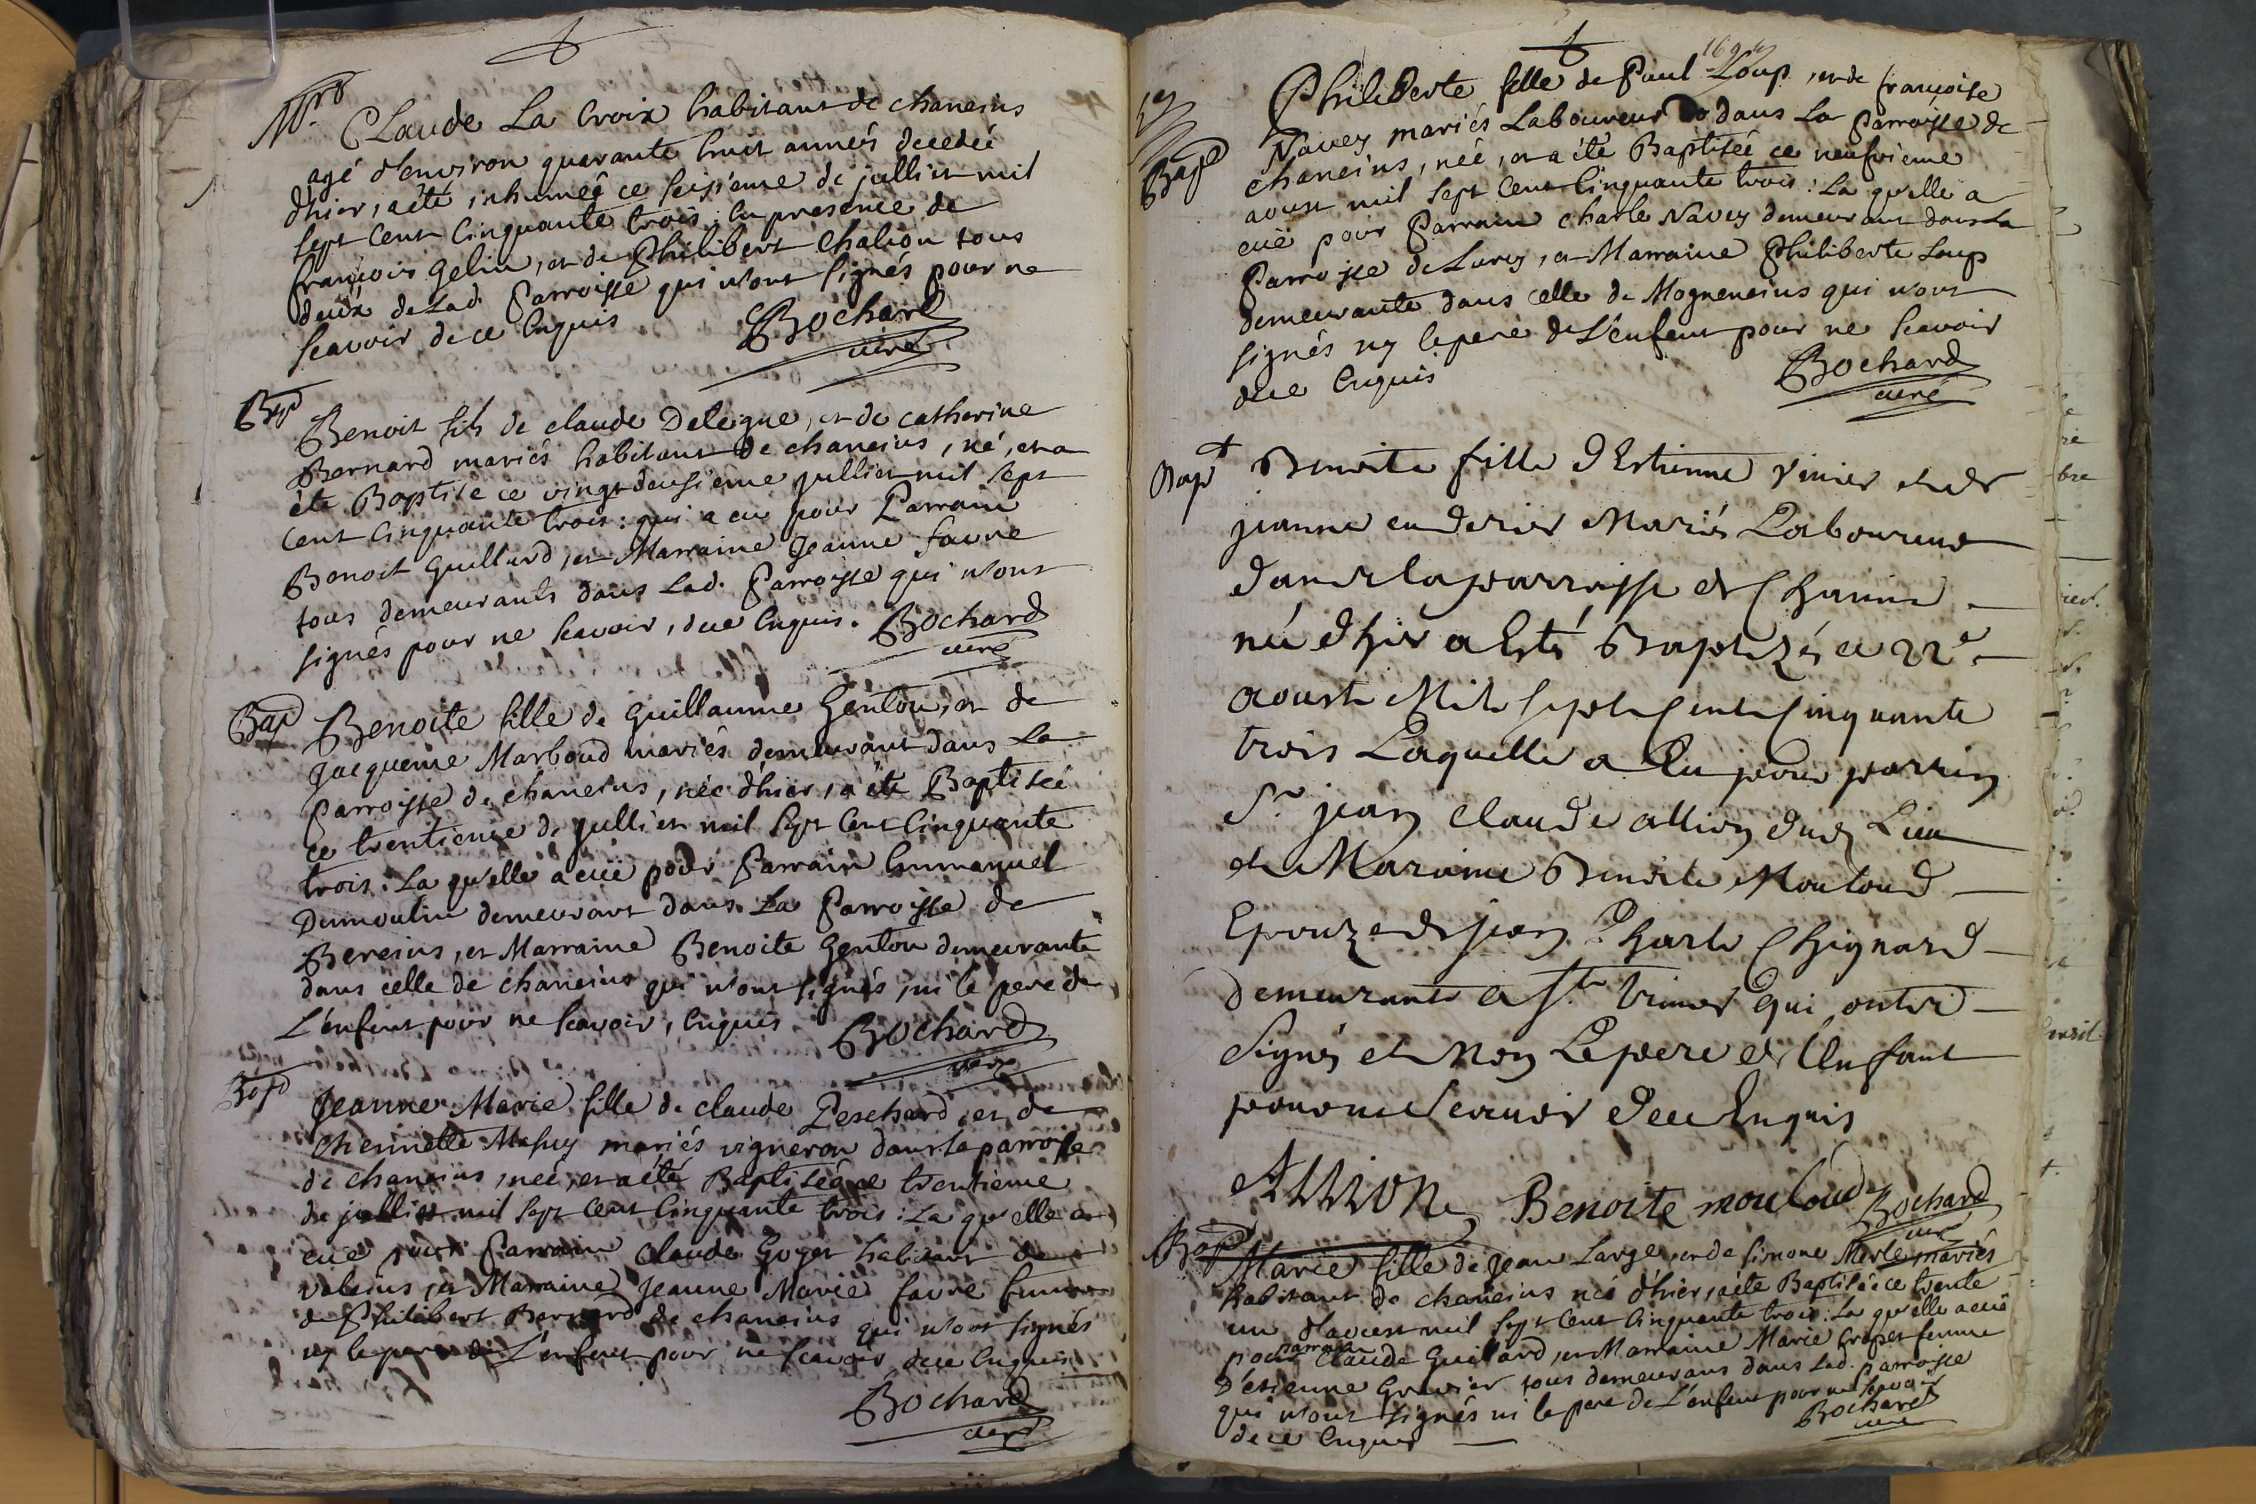 Claude La Croix habitant de chaneins
agé d'environ quarante huit années decedeé
d'hier, a été inhumeé ce seisieme de jullier mil
sept Cent Cinquante trois. En presence de
françois gelin, et de Philibert Chalion tous
deux de Lad. Parroisse qui n'ont signés pour ne
scavoir de ce Enquis
Bochard
curé
Bap
Benoit fils de claude Deleigne, et de catherine
Bernard mariés habitant de chaneins, né, et a
été Baptise ce vingt deusieme jullier mil sept
Cent Cinquante trois: qui a eu pour Parrain
Benoit Guillard, et Marraine Jeanne favre
tous demeurants dans Lad. Parroisse qui n'ont
signés pour ne scavoir, dece Enquis. Bochard
curé
Bap
Benoite fille de Guillaume Genton, et de
Jacqueme Marboud mariés demeurant dans La
Parroisse de chaneins, née d'hier, a été Baptiseé
ce trentieme de Jullier mil Sept Cent Cinquante
trois. La qu'elle a eüe pour Parrain Emmanuel
Dumoulin demeurant dans La Parroisse de
Bereins, et Marraine Benoite Genton demeurante
dans celle de chaneins qui n'ont signés, ni le pere de
L'enfent pour ne scavoir, Enquis
Bochard
curé
Bap
Jeanne Marie fille de claude Peschard, et de
mariés vigneron dans la parroisse
de chaneins, neé, et a été Baptiseé ce trentieme
de jullier mil sept Cent Cinquante trois: La qu'elle a
eüe pour Parrain Claude Goyet habitant de
valeins, et Marraine Jeanne Marie favre femme
de Philibert Bernard de chaneins qui n'ont signés
ny le pere de L'enfent pour ne scavoir dece Enquis
Bochard
curé
Philiberte fille de Paul Loup, et de françoise
Navey mariés Laboureur dans La Parroisse de
Bap
chaneins, neé, et a été Baptiseé ce neufvieme
aoust mil Sept Cent Cinquante trois: La qu'elle a
eüe pour Parrain charle Navey demeurant dans la
Parroisse de Lurcy, et Marraine Philiberte Loup
demeurante dans celle de Mogneneins qui n'ont
signés ny le pere de L'enfent pour ne scavoir
dece Enquis
Bochard
curé
Bapt
Benoite fille d'Estienne Vinier et de
jeanne Mariés Laboureur
dans la parroisse de Chanins
neé d'hier a Esté Baptizés ce 22e
aoust Mil sept Cent Cinquante
trois Laquelle a Eu pour parrin
Sr jean claude allion dud Lieu
et Maraine Benoite Moutoud
Epouze de jean Charle Chignard
demeurante a St trivier qui ont
Signés et non Le pere de L'Enfant
pour ne Scavoir dece Enquis
Allion Benoite moutoud Bochard
curé
Bap
Marie fille de Jean Large, et de simone Merle mariés
habitant de chaneins neé d'hier, a été Baptiseé ce trente
un d'aoust mil sept Cent Cinquante trois: La qu'elle a eüe
pour parrain Claude Guillard, et Marraine Marie Cropet femme
d'etienne Gravier tous demeurans dans Lad. parroisse
qui n'ont signés ni le pere de L'enfent pour ne scavoir
dece Enquis
Bochard
curé